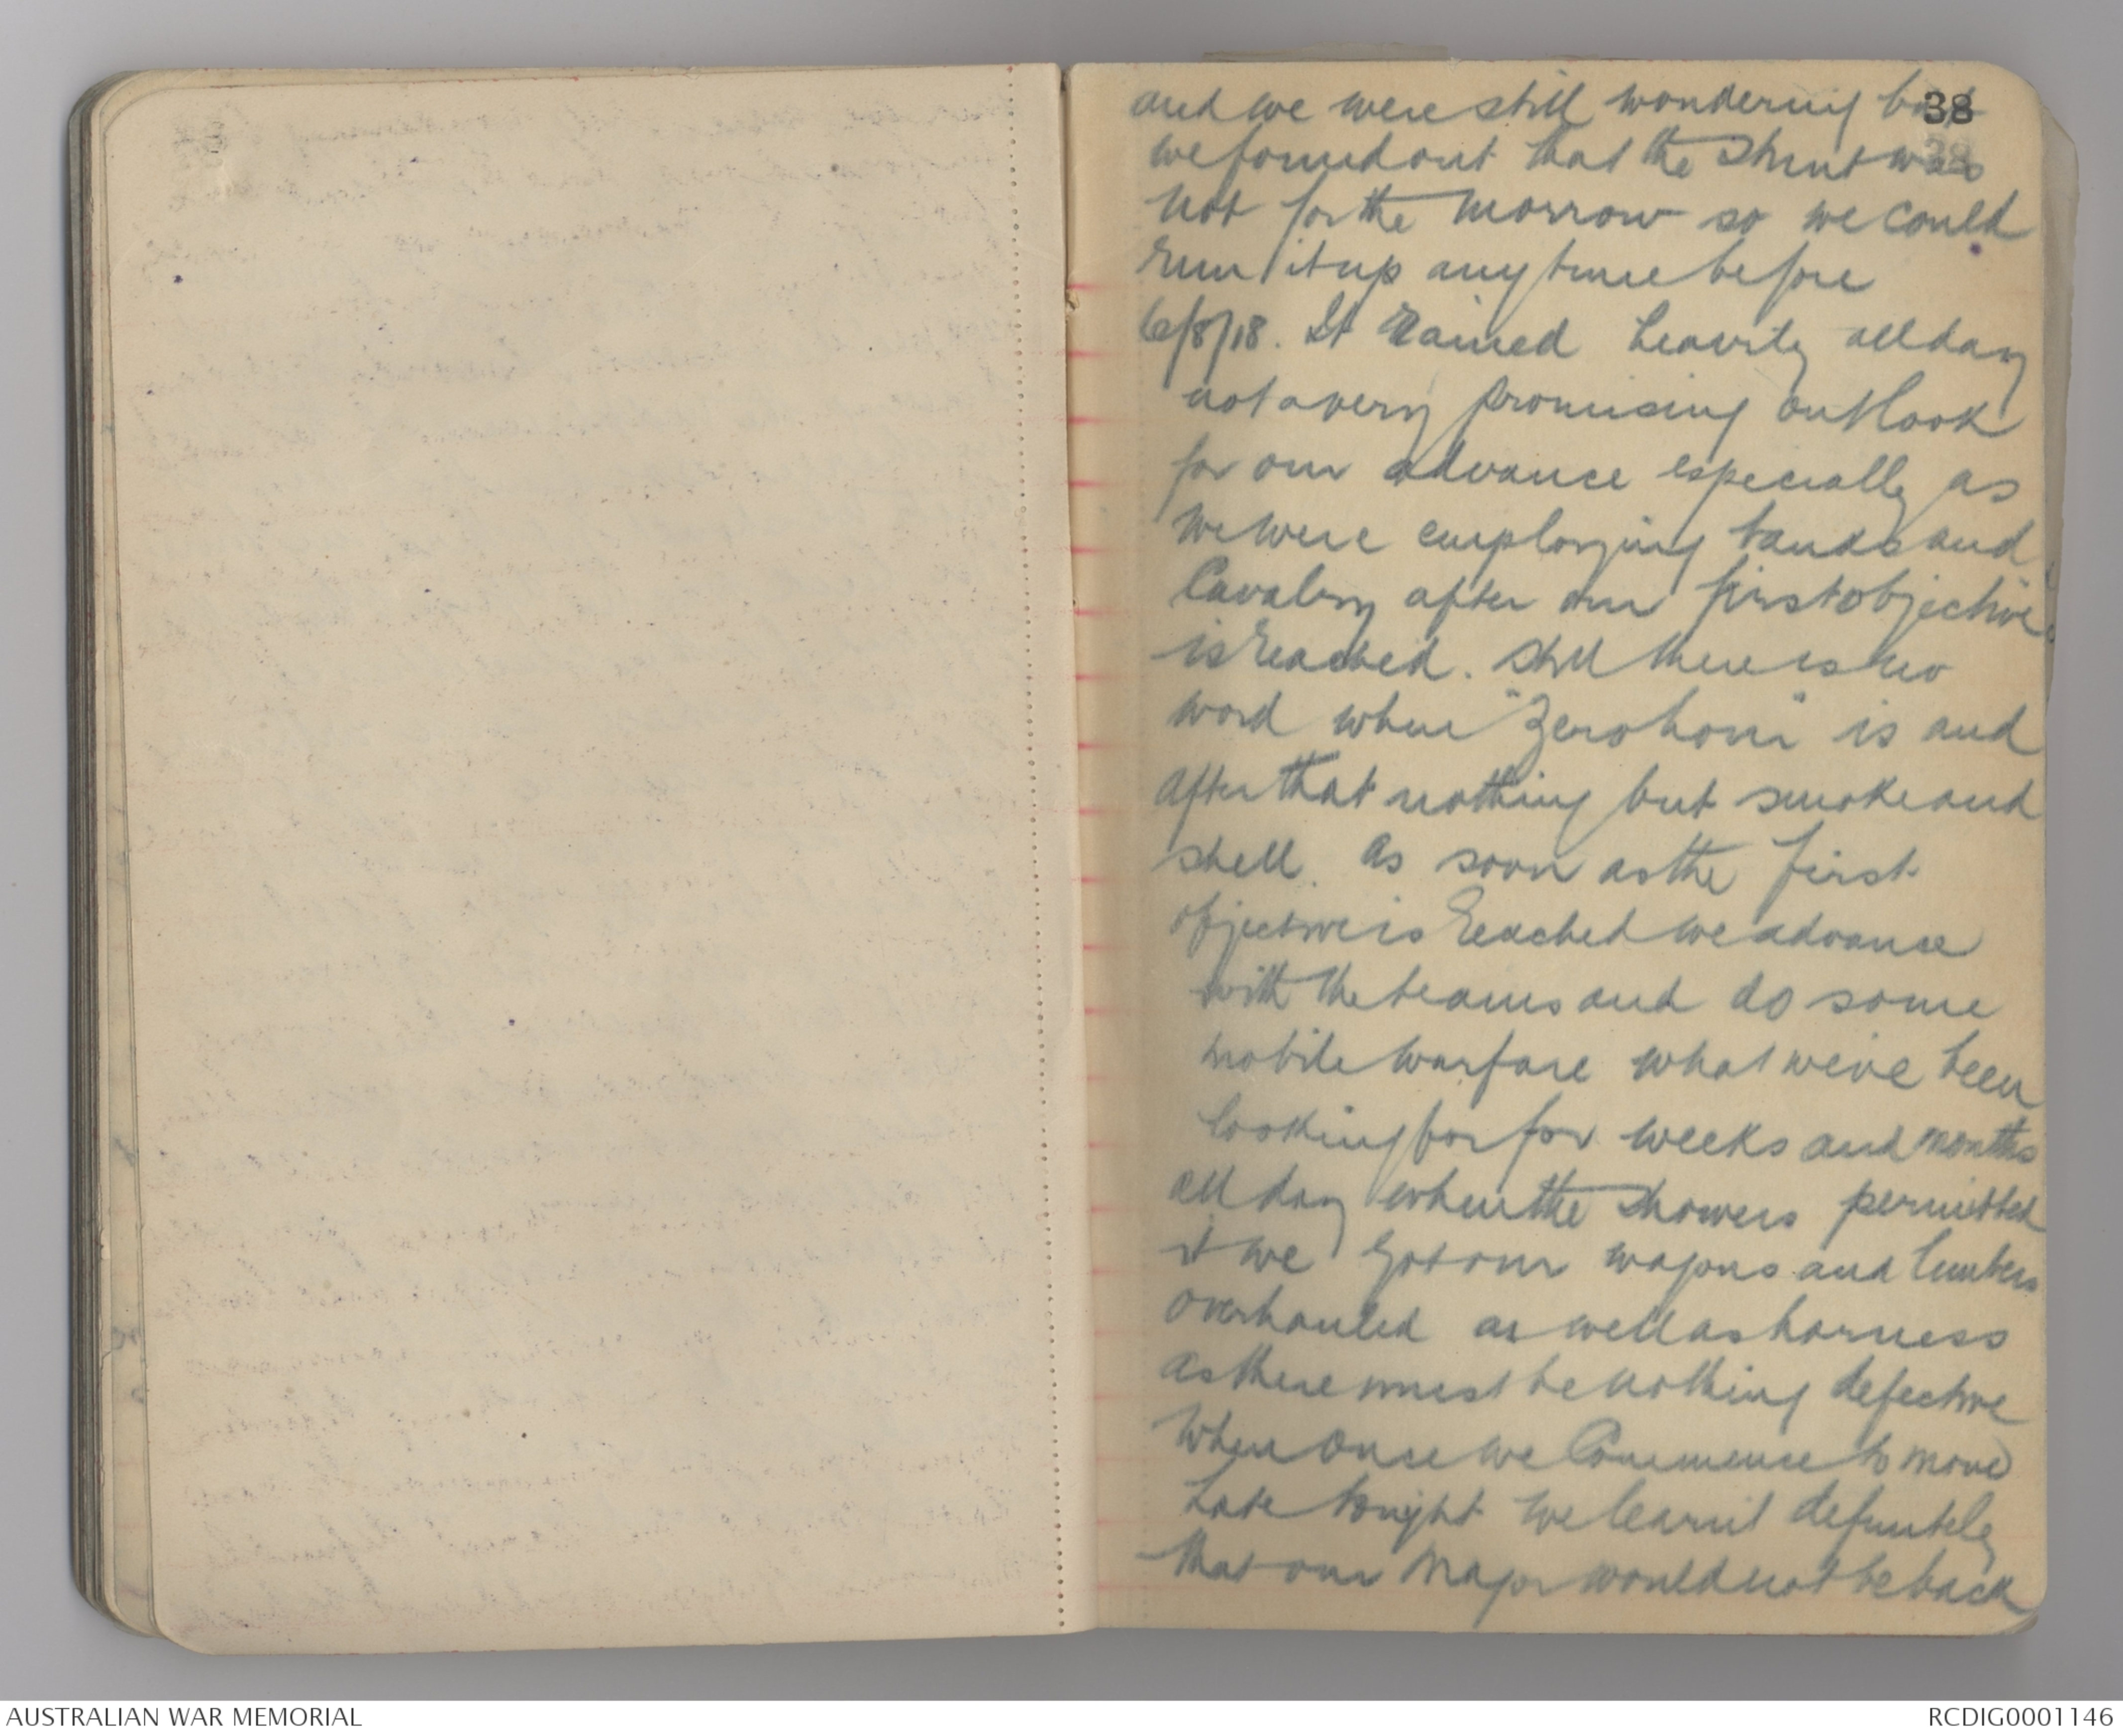 38
and we were still wondering but
we found out that the Stunt was
not for the morrow so we could
run it up any time before
6/8/18. It rained heavily all day
not a very promising outlook
for our advance especially as
we were employing tanks and
Cavalry after our first objective
is reached. Still there is no
word when "Zero hour" is and
after that nothing but smoke and
shell. As soon as the first
objective is reached we advance
with the teams and do some
mobile warfare what we've been
looking for for weeks and months
all day when the showers permitted
it we got our wagons and limbers
overhauled as well as harness
as there must be nothing defective
when once we Commence to move
Late tonight we learnt definitely
that our Major would not be back
AUSTRALIAN WAR MEMORIAL
RCDIG0001146